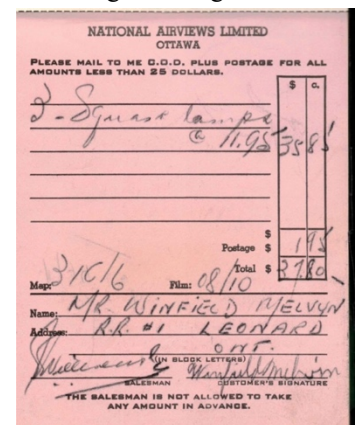 NATIONAL AIRVIEWS LIMITED
OTTAWA
PLEASE MAIL TO ME C.O.D. PLUS POSTAGE FOR ALL
AMOUNTS LESS THAN 25 DOLLARS.
$ c.
3 - Square lamps
@ 11.95 35 85
$
Postage $ 1 95
Map: 3-16/6 Film: 08/10 Total $ 37 80
Name: MR. WINFIELD MELVYN
Address: R.R. #1 LEONARD
ONT.
(IN BLOCK LETTERS) Winfield Melvin
SALESMAN CUSTOMER'S SIGNATURE
THE SALESMAN IS NOT ALLOWED TO TAKE
ANY AMOUNT IN ADVANCE.